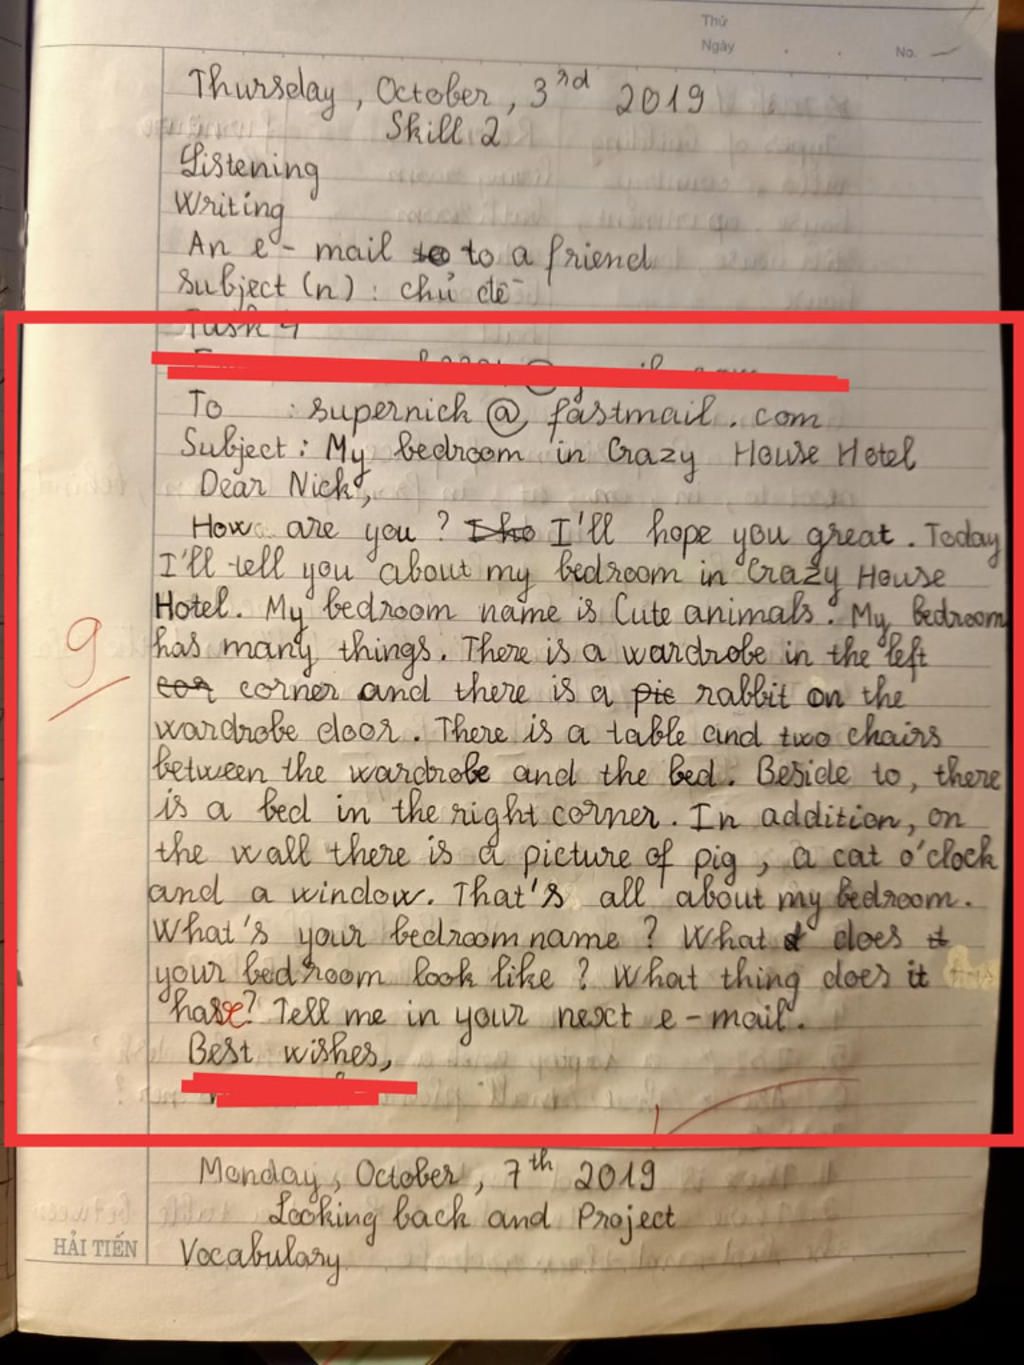 Thứ
Ngày
No.
Thursday, October, 3rd 2019
Skill 2
Listening
Writing
An e-mail to a friend
Subject (n) : chủ đề
Task 4
To : supernick @ fastmail . com
Subject : My bedroom in Crazy House Hotel
Dear Nick,
How are you ? I'll hope you great. Today
I'll tell you about my bedroom in Crazy House
Hotel. My bedroom name is Cute animals. My bedroom
has many things. There is a wardrobe in the left
corner and there is a rabbit on the
wardrobe door. There is a table and two chairs
between the wardrobe and the bed. Beside to, there
is a bed in the right corner. In addition, on
the wall there is a picture of pig, a cat o'clock
and a window. That's all about my bedroom.
What's your bedroom name ? What does
your bedroom look like ? What thing does it
have? Tell me in your next e-mail.
Best wishes,
9
Monday, October, 7th 2019
Looking back and Project
Vocabulary
HẢI TIẾN